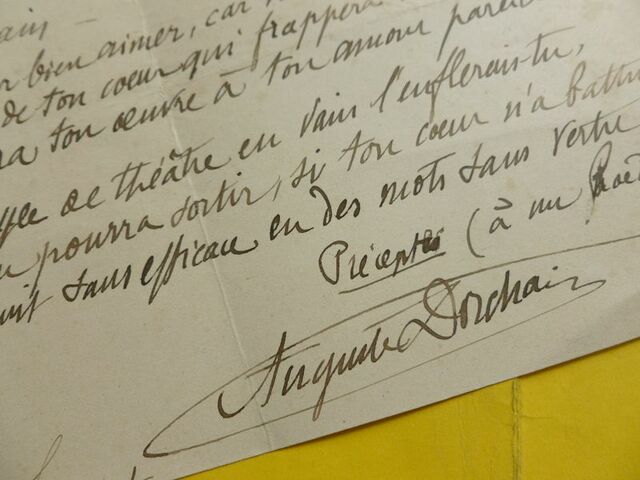 bien aimer, car
de ton coeur qui frappera
ton œuvre à ton amour pareil
de théâtre en vain l'enflerais-tu,
pourra sortir, si ton coeur n'a battu
sans efficace en des mots sans vertu
Préceptes (à un Poè
Auguste Dorchain